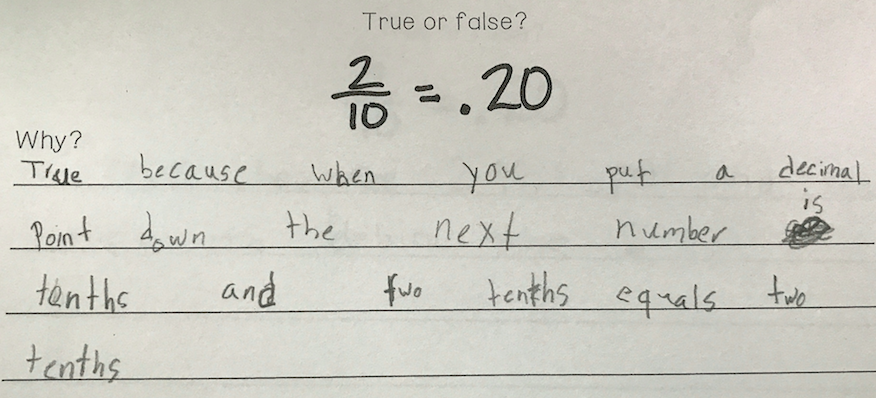 True or false?
2/10 = .20
Why?
True because when you put a decimal
Point down the next number is
tenths and two tenths equals two
tenths